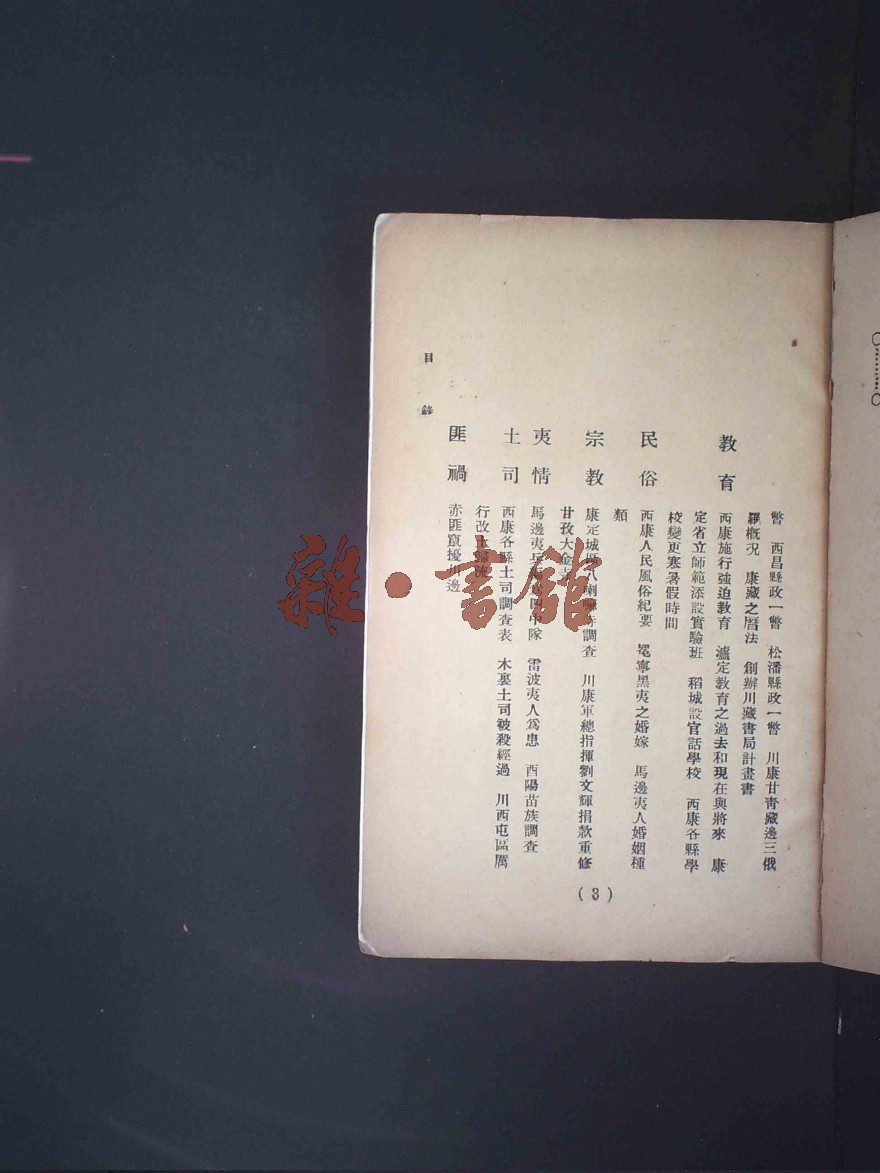 瞥　西昌縣政一瞥　松潘縣政一瞥　川康甘青藏邊三俄
羅概况　康藏之曆法　創辦川藏書局計畫書
教育
西康施行強迫教育　瀘定教育之過去和現在與將來　康
定省立師範添設實驗班　稻城設官話學校　西康各縣學
校變更寒暑假時間
民俗
西康人民風俗紀要　冕寧黑夷之婚嫁　馬邊夷人婚姻種
類
宗教
康定城區八喇嘛寺調查　川康軍總指揮劉文輝捐款重修
甘孜大金寺
夷情
馬邊夷兵　四中隊　雷波夷人爲患　酉陽苗族調查
土司
西康各縣土司調查表　木裏土司被殺經過　川西屯區厲
行改土歸流
匪禍
赤匪竄擾川邊
目錄
(3)
雜·書館